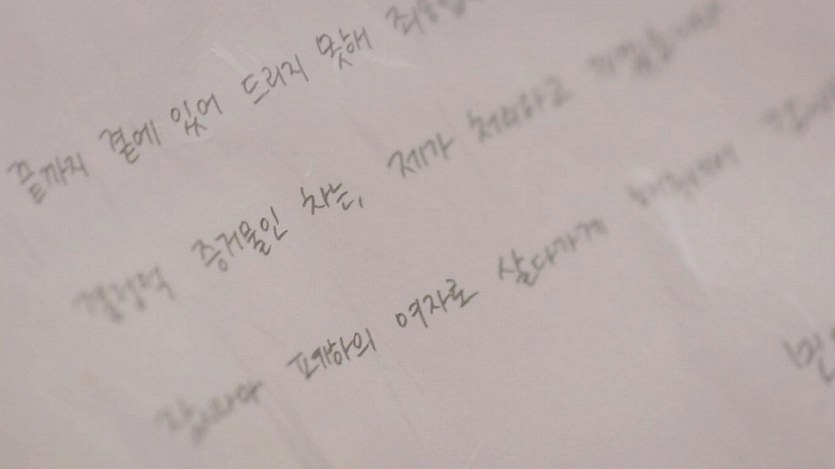 끝까지 곁에 있어 드리지 못해
결정적 증거물인 차는, 제가 처리하고
잠시나마 폐하의 여자로 살다가게